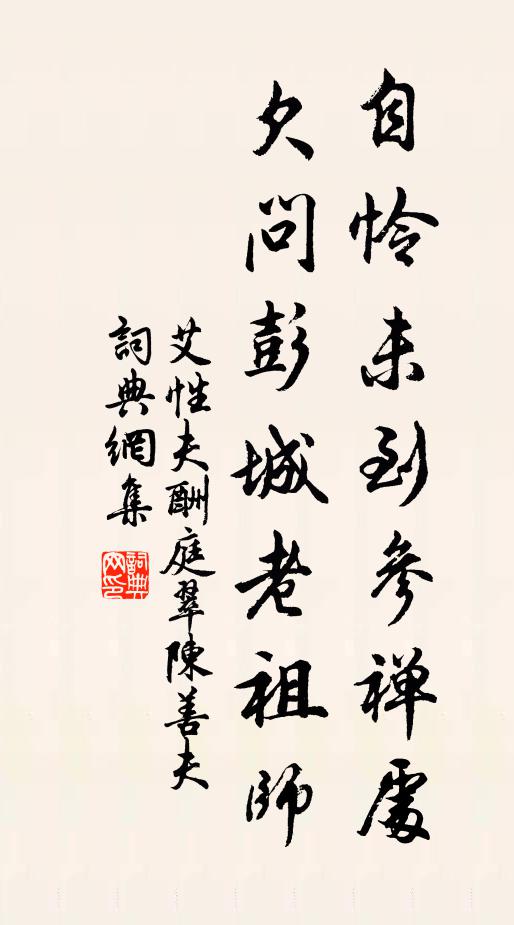 自怜未到参禅處
欠問彭城老祖師
艾性夫酬庭翠陳善夫
詞典網集
詞典网印